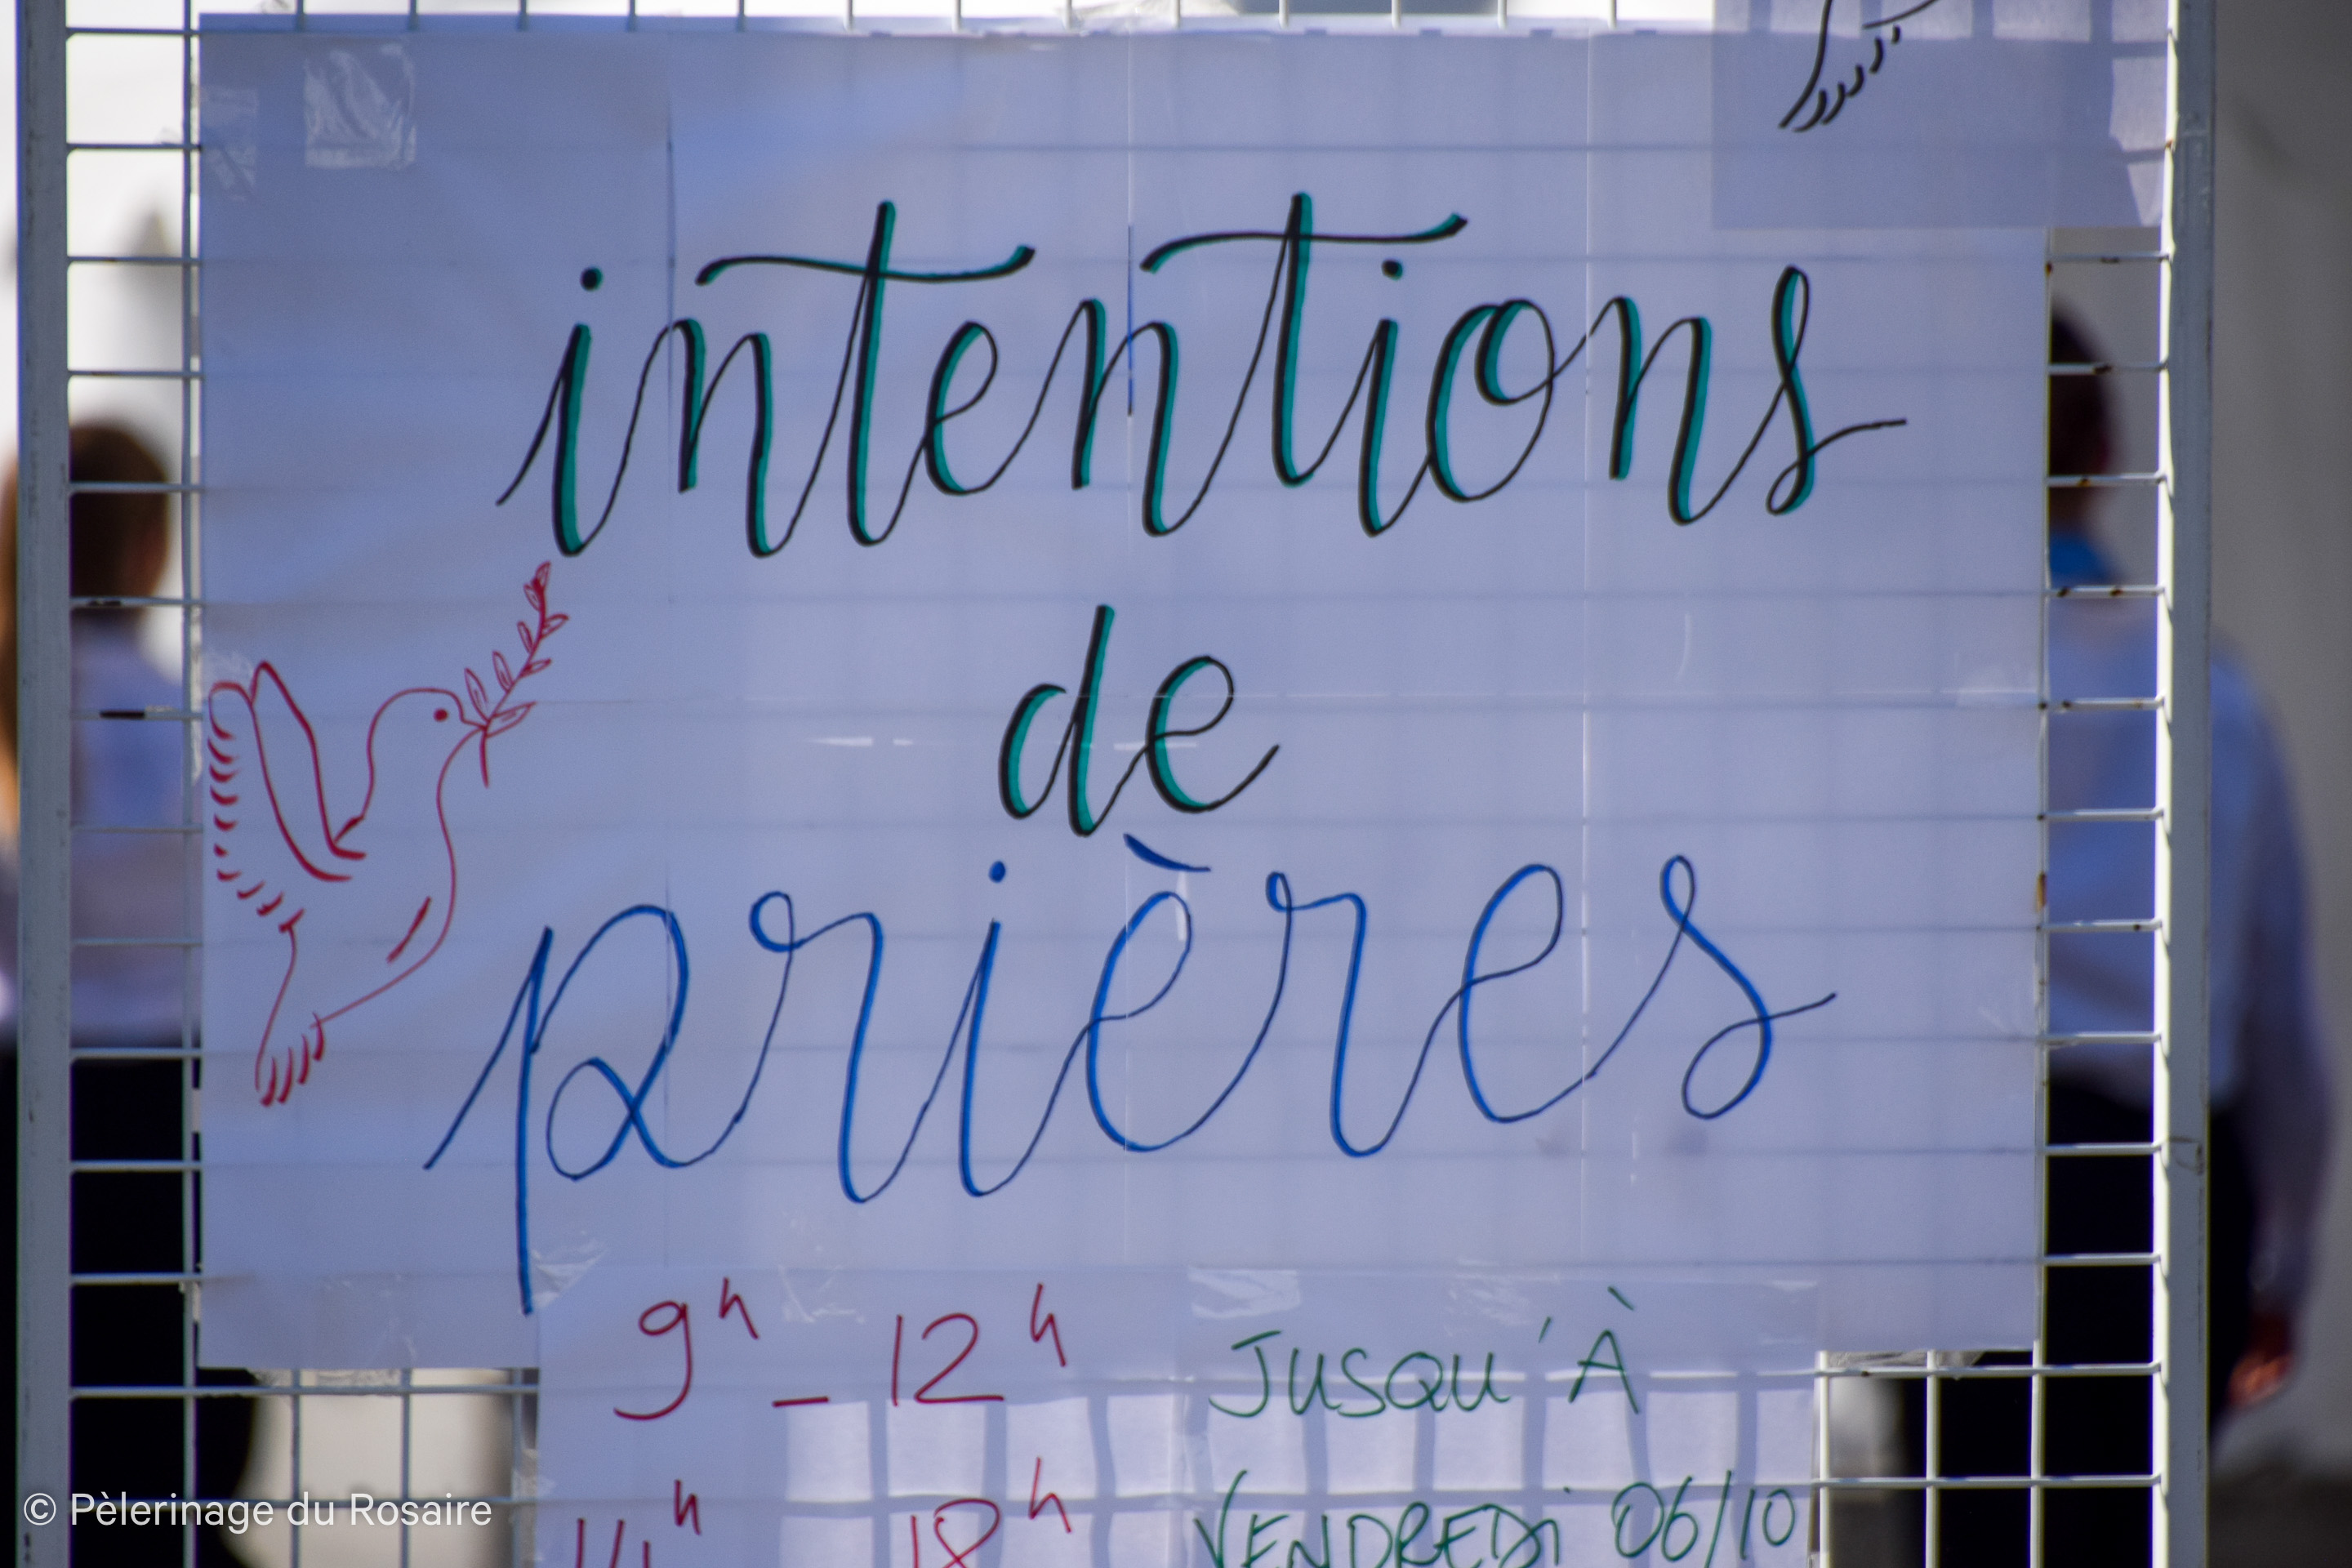 intentions
de
prières
9h - 12h
JUSQU'À
14h 18h
VENDREDi 06/10
© Pèlerinage du Rosaire